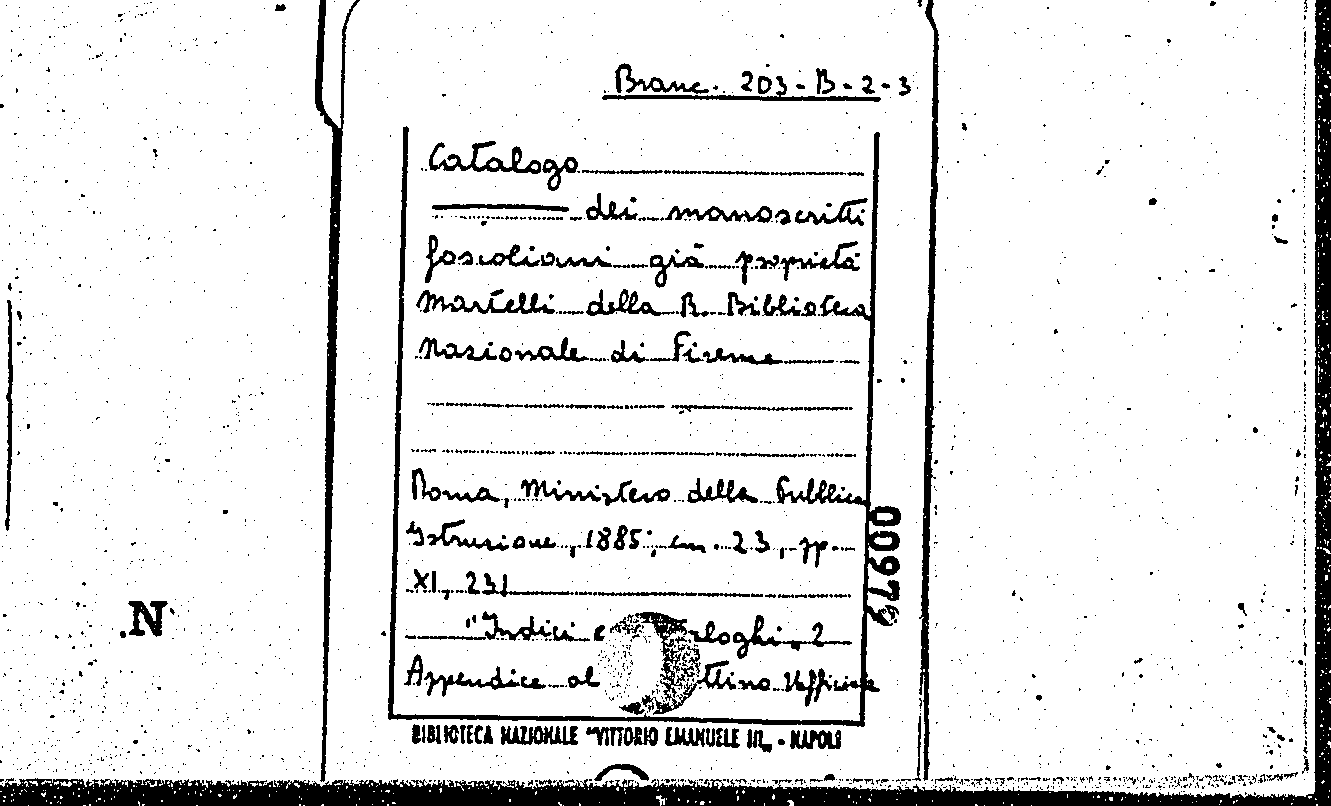 Branc. 203-B-2-3
Catalogo
dei manoscritti
foscoliani già proprietà
Martelli della R. Biblioteca
Nazionale di Firenze
Roma, Ministero della Pubblica
Istruzione, 1885; cm. 23, pp.
XI, 231
"Indici e 2
Appendice al Ufficiale
BIBLIOTECA NAZIONALE "VITTORIO EMANUELE III" - NAPOLI
N